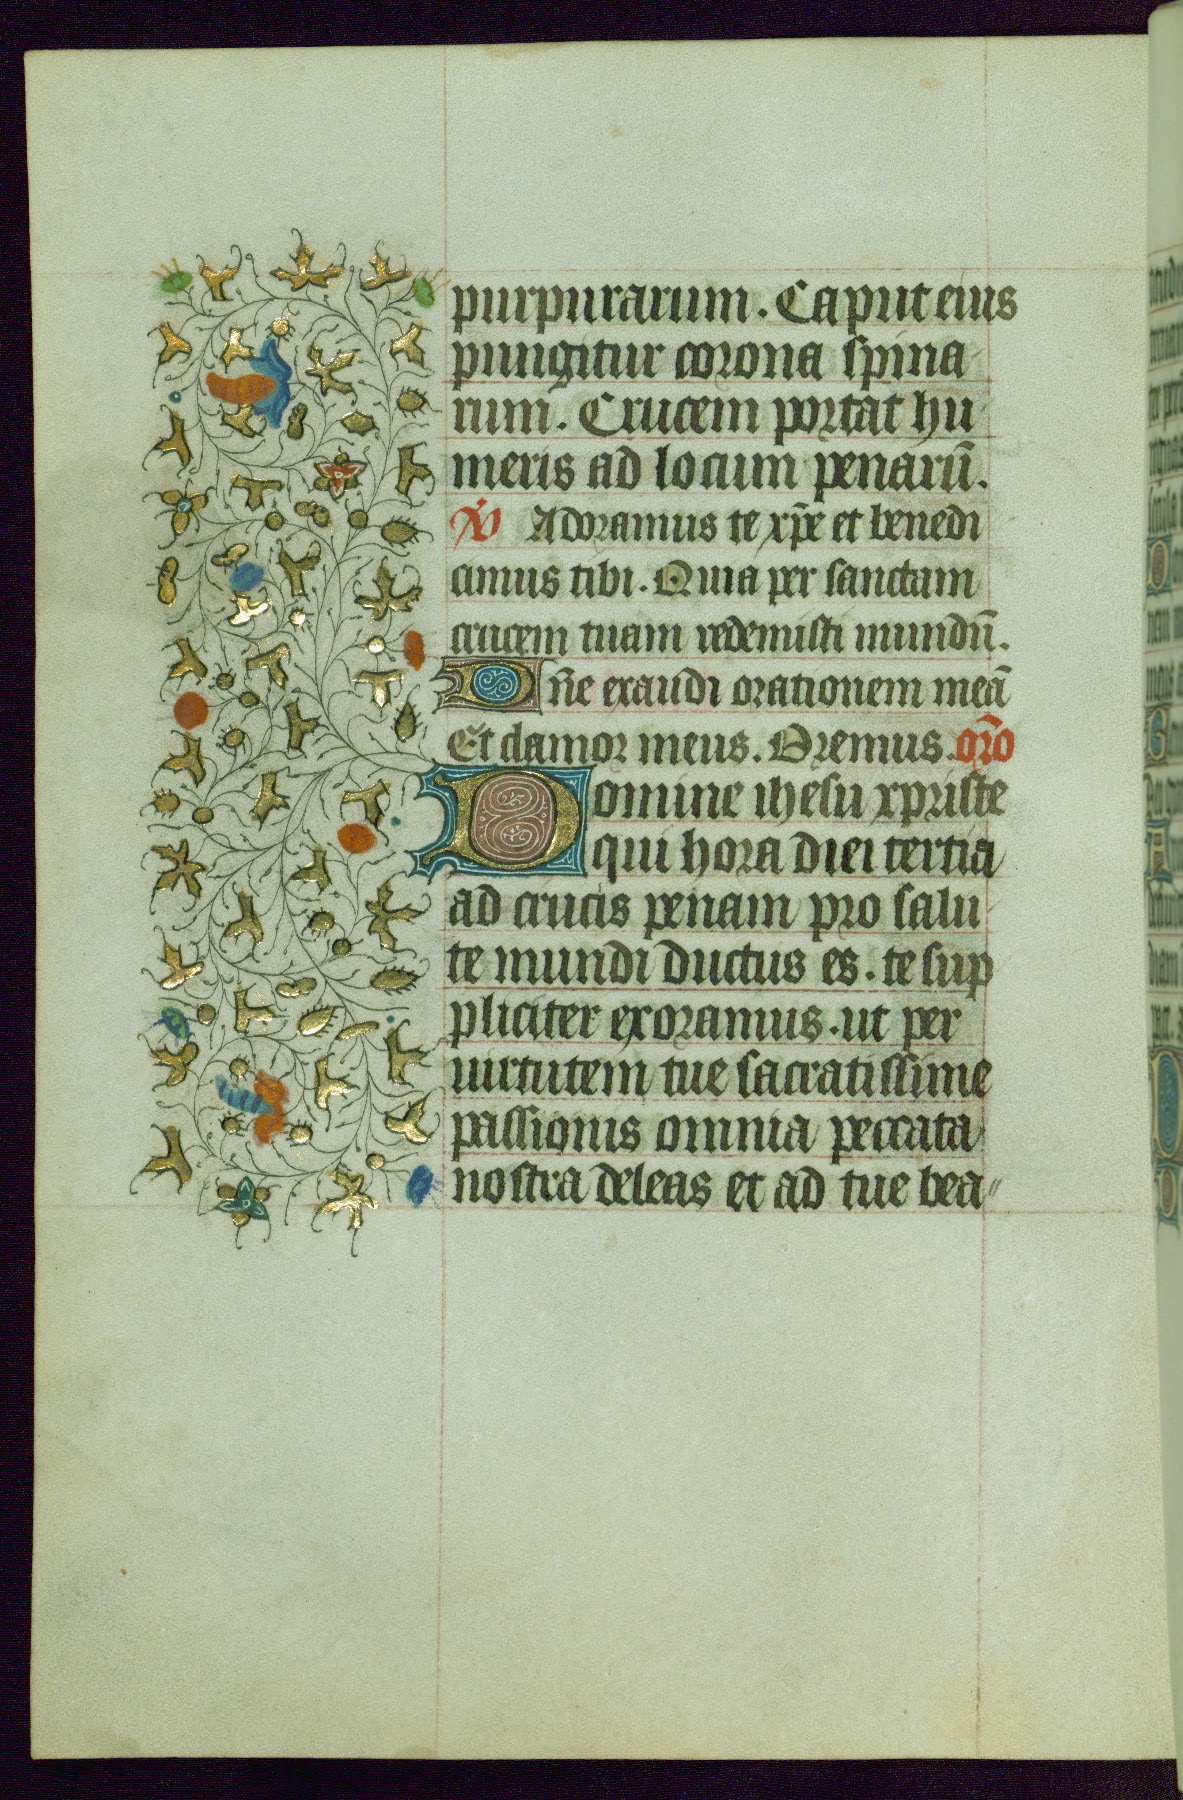 purpurarum. Caput eius
pungitur corona spina
rum. Crucem portat hu
meris ad locum penarū.
Adoramus te xp̄e et benedi
cimus tibi. Quia per sanctam
crucem tuam redemisti mundū.
Dn̄e exaudi orationem meā
Et clamor meus. Oremus. or̄o
Domine ihesu xpriste
qui hora diei tertia
ad crucis penam pro salu
te mundi ductus es. te sup
pliciter exoramus. ut per
uirtutem tue sacratissime
passionis omnia peccata
nostra deleas et ad tue bea"